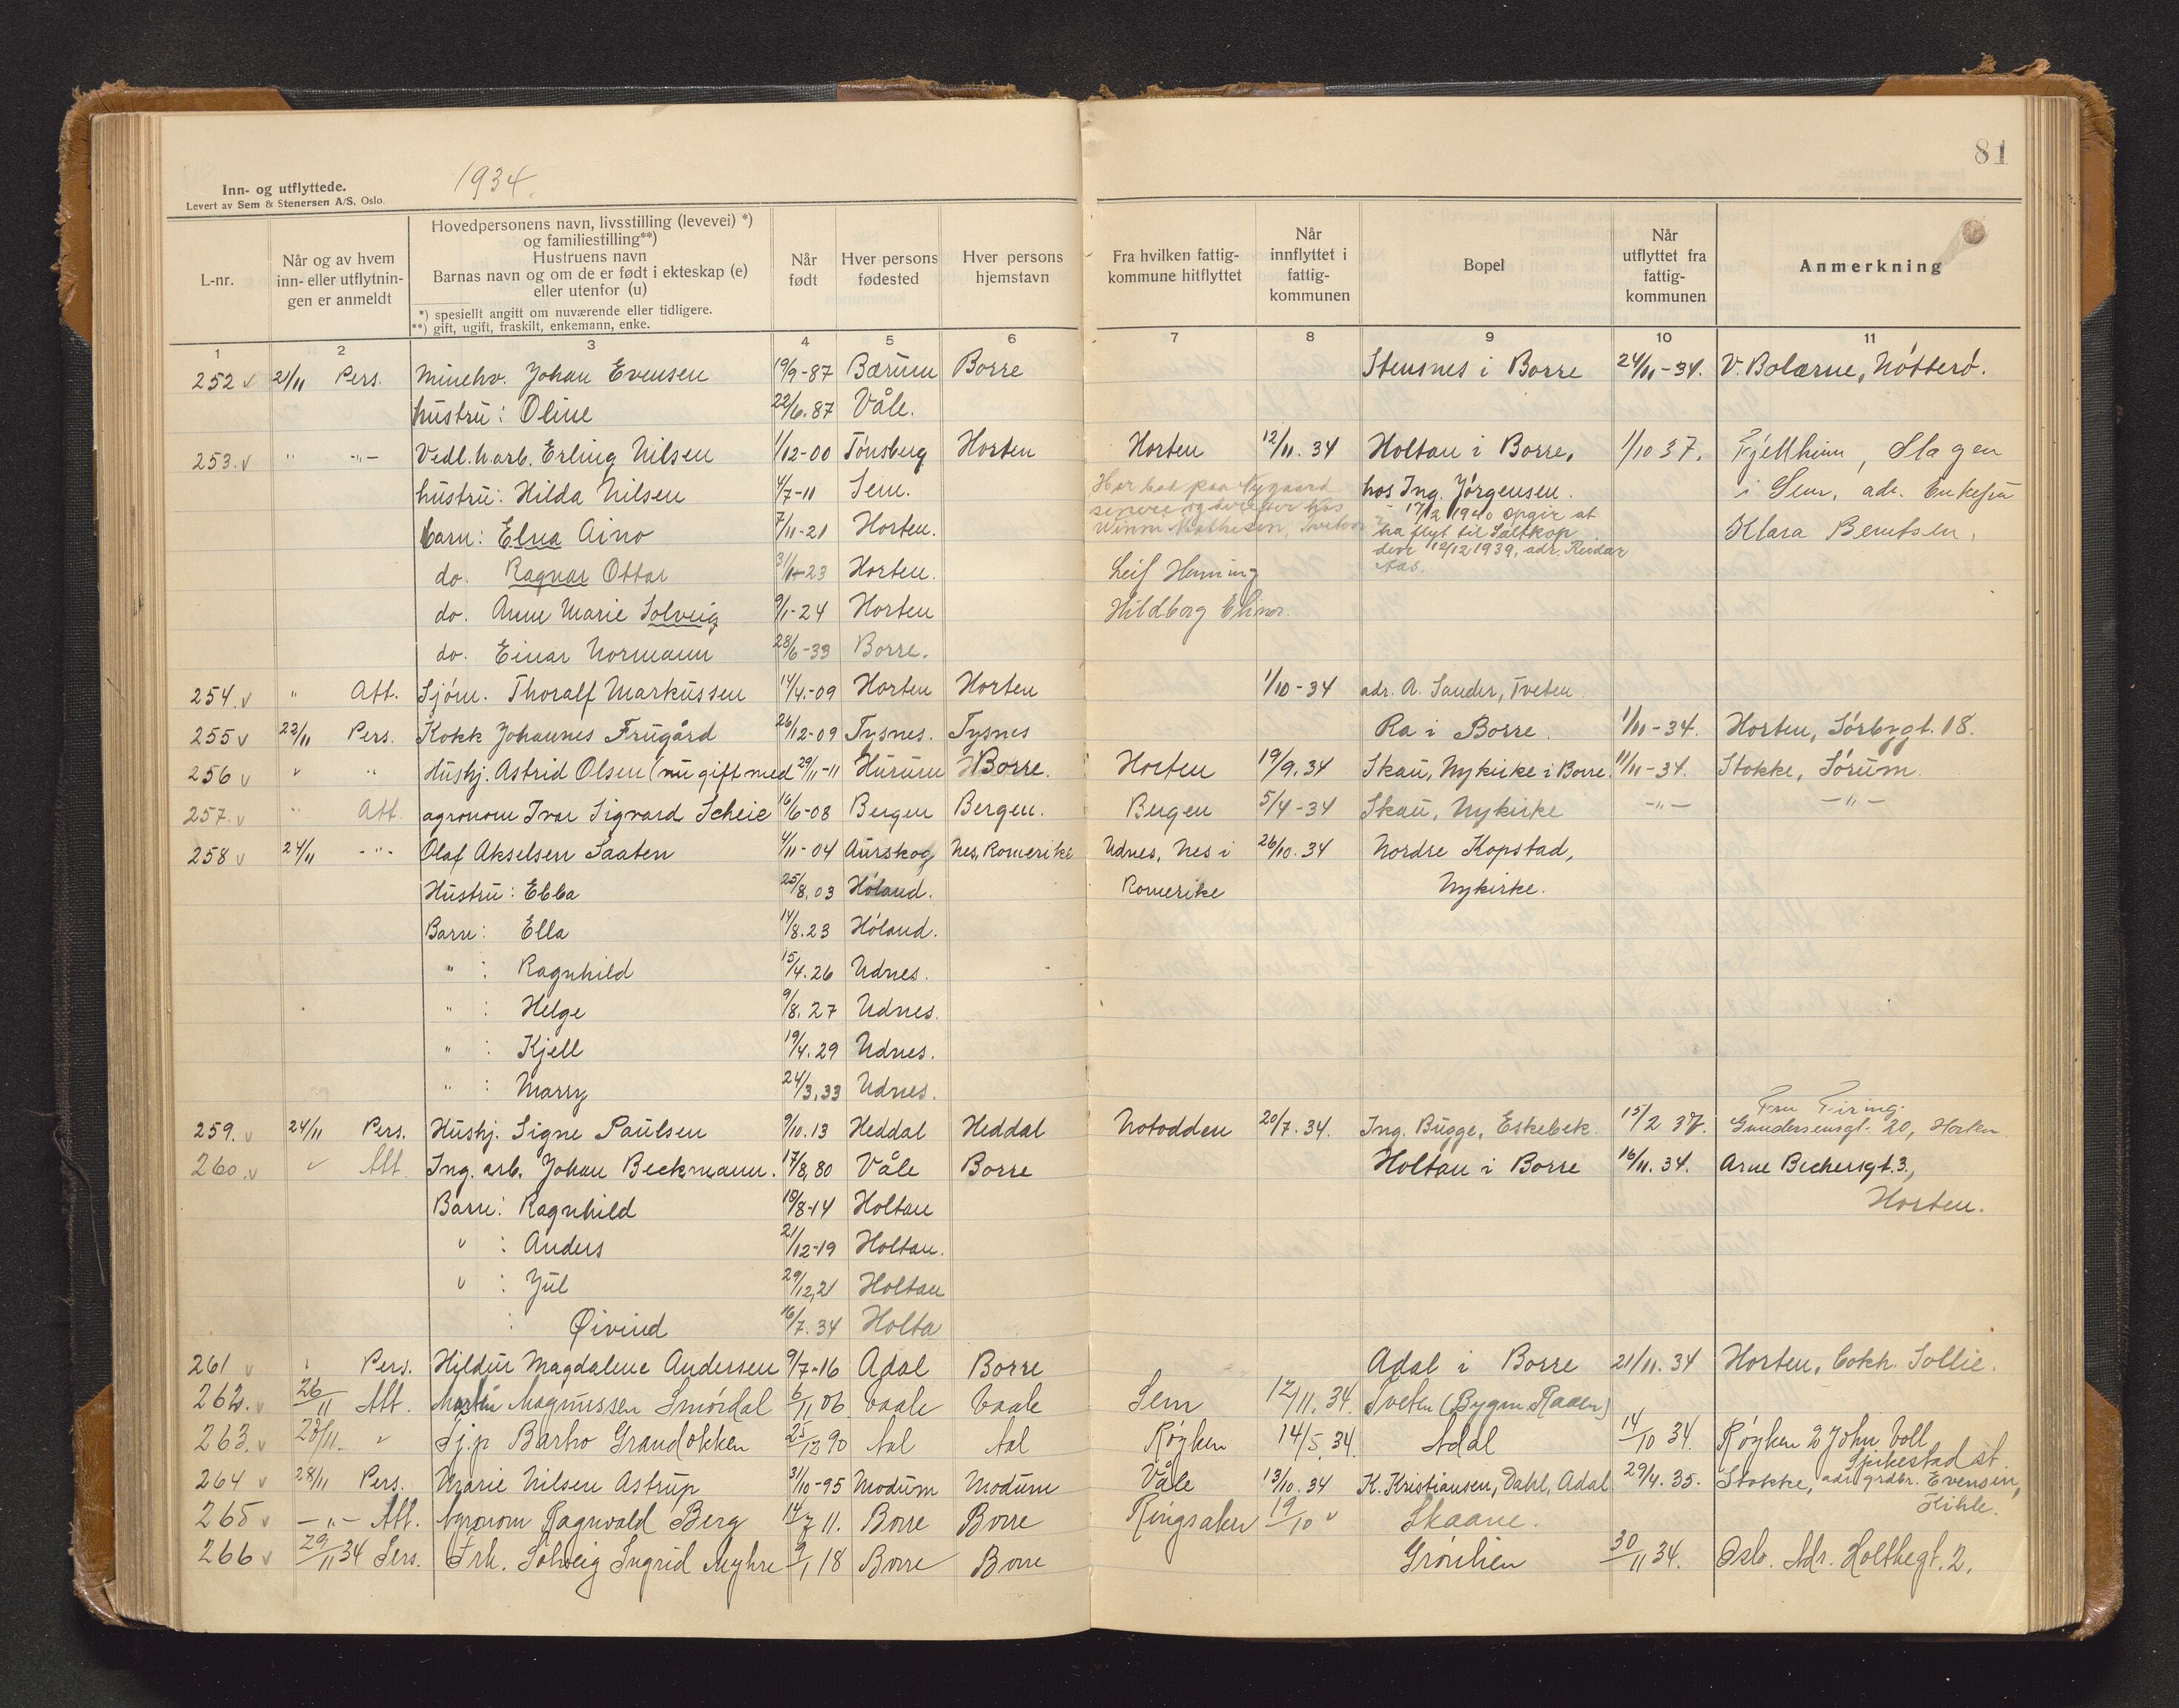 81
Inn- og utflyttede.
1934.
Levert av Sem & Stenersen A/S, Oslo.
L-nr.
Når og av hvem inn- eller utflytnin- gen er anmeldt
Hovedpersonens navn, livsstilling (levevei) *)
og familiestilling**)
Hustruens navn
Barnas navn og om de er født i ekteskap (e)
eller utenfor (u)
*) spesiellt angitt om nuværende eller tidligere.
**) gift, ugift, fraskilt, enkemann, enke.
Når født
Hver persons fødested
Hver persons hjemstavn
Fra hvilken fattig- kommune hitflyttet
Når innflyttet i fattig- kommunen
Bopel
Når utflyttet fra fattig- kommunen
Anmerkning
1 2 3 4 5 6 7 8 9 10 11
252 21/11 Pers. Minehv. Johan Evensen 19/9-87 Bærum Borre Stensnes i Borre 24/11-34. V. Bolærne, Nøtterø.
hustru: Oline 22/6.87 Våle.
253. " -"- Vedl.h.arb. Erling Nilsen 1/12-00 Tønsberg Horten Horten 12/11.34 Holtan i Borre, 1/10 37. Fjellheim, Slagen
hustru: Hilda Nilsen 4/7-11 Sem. hos Ing. Jørgensen. i Sem, adr. Enkefru
Har bod paa Nygaard
senere og derefter hos
17/2 1940 opgir at
barn: Elna Aino 7/11-21 Horten. ha flyt til Saltkop Klara Berntsen,
den 12/12 1939, adr. Reidar
Aas.
do. Ragnar Ottar 31/1-23 Horten. Leif Henning
do. Anne Marie Solveig 9/1-24 Horten Hildborg Elinor.
do. Einar Normann 28/6-33 Borre.
254. " Att. Sjøm. Thoralf Markussen 14/4.-09 Horten Horten 1/10-34 adr. A. Sander, Tveten
255 22/11 Pers. Kokk Johannes Frugård 26/12-09 Tysnes. Tysnes Ra i Borre. 1/11-34. Horten, Sørbygt. 18.
256 " " Hushj. Astrid Olsen (nu gift med 29/11-11 Hurum Borre. Horten 19/9.34 Skau, Nykirke i Borre. 11/11-34. Stokke, Sørum.
257. " Att. agronom Ivar Sigvard Scheie 16/6-08 Bergen Bergen. Bergen 5/4-34 Skau, Nykirke -"- -"-
258 24/11 -"- Olaf Akselsen Saaten 4/11-04 Aurskog Nes, Romerike Udnes, Nes i 26/10.34 Nordre Kopstad,
Hustru: Ebba 25/8.03 Høland. Romerike Nykirke.
Barn: Ella 14/8.23 Høland.
" : Ragnhild 15/4.26 Udnes.
" : Helge 9/8.27 Udnes.
" : Kjell 19/4.29 Udnes.
" : Marry 24/3.33 Udnes.
Fru Firing.
259. 24/11 Pers. Hushj. Signe Paulsen 9/10.13 Heddal Heddal Notodden 20/7.34. Ing. Bugge, Eskebek. 15/2 37. Gundersensgt. 20, Horten
260. " Att. Ing. arb. Johan Beckmann. 17/8,80 Våle Borre Holtan i Borre 16/11.34. Arne Bechersgt. 3.,
Barn: Ragnhild 18/8-14 Holtan Horten.
" : Anders 21/12-19 Holtan.
" : Jul 29/12,21 Holtan
: Øivind 16/7.34 Holta
261 " Pers. Hildur Magdalene Andersen 9/7-16 Adal Borre Adal i Borre 21/11.34 Horten, Cokk. Sollie.
262. 26/11 Att. Martin Magnussen Smørdal 6/11 06. Vaale Vaale Sem 12/11.34. Tveten (Bygm. Raaen)
263. 28/11. " Tj.p Barbro Grandokken 25/12 90 Aal Aal Røyken 14/5.34. Adal 14/10 34. Røyken % John Voll
Spikestad st.
264 28/11 Pers. Marie Nilsen Astrup 31/10-95 Modum Modum Våle 13/10.34 K. Kristiansen, Dahl, Adal 29/4.35. Stokke, adr. grdbr. Evensen,
Kihle.
265 -"- Att. Agronom Ragnvald Berg 14/7 11. Borre Borre Ringsaker 19/10 " Skaane.
266 29/11 34 Pers. Frk. Solveig Ingrid Myhre 9/1 18 Borre Borre Grønlien 30/11 34. Oslo. Adr. Holthegt. 2.